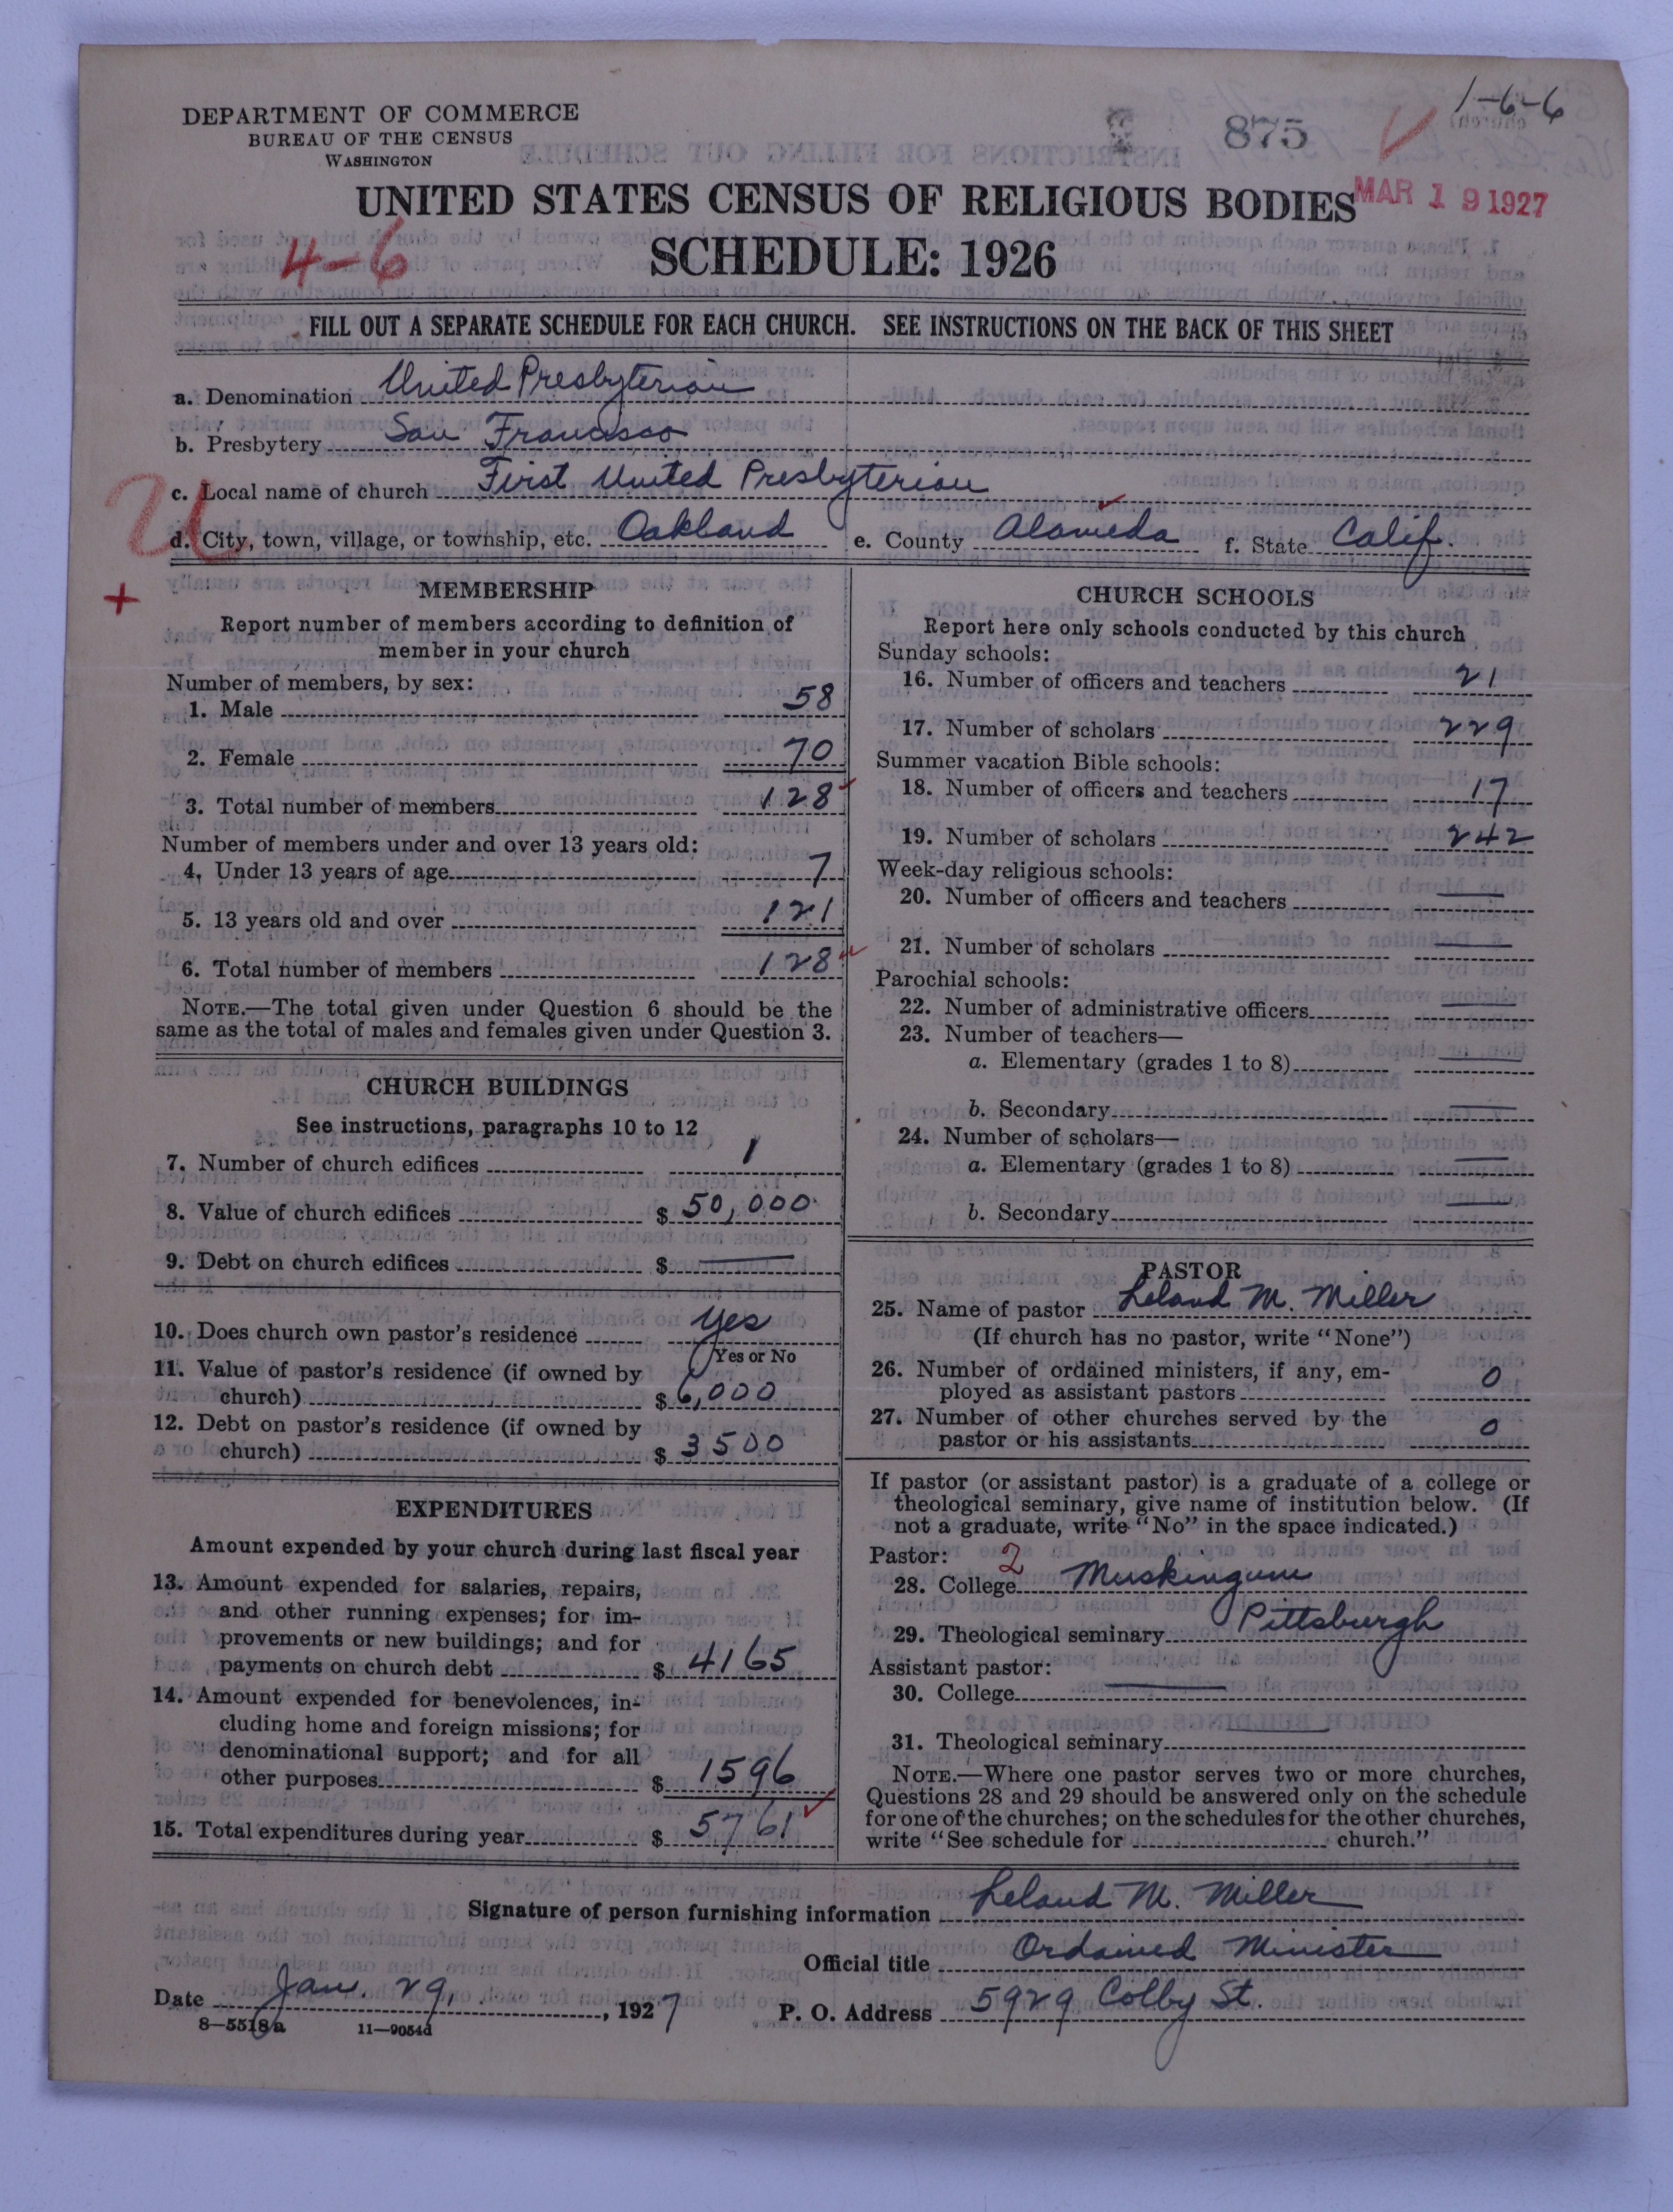 1-6-6
DEPARTMENT OF COMMERCE
BUREAU OF THE CENSUS
WASHINGTON
875
MAR 19 1927
UNITED STATES CENSUS OF RELIGIOUS BODIES
4-6
SCHEDULE: 1926
FILL OUT A SEPARATE SCHEDULE FOR EACH CHURCH. SEE INSTRUCTIONS ON THE BACK OF THIS SHEET
a. Denomination United Presbyterian
b. Presbytery San Francisco
c. Local name of church First United Presbyterian
d. City, town, village, or township, etc. Oakland e. County Alameda f. State Calif.
MEMBERSHIP
Report number of members according to definition of
member in your church
Number of members, by sex:
1. Male 58
2. Female 70
3. Total number of members 128
Number of members under and over 13 years old:
4. Under 13 years of age 7
5. 13 years old and over 121
6. Total number of members 128
NOTE.—The total given under Question 6 should be the
same as the total of males and females given under Question 3.
CHURCH BUILDINGS
See instructions, paragraphs 10 to 12
7. Number of church edifices 1
8. Value of church edifices $ 50,000
9. Debt on church edifices $ —
10. Does church own pastor's residence Yes
Yes or No
11. Value of pastor's residence (if owned by
church) $ 6,000
12. Debt on pastor's residence (if owned by
church) $ 3500
EXPENDITURES
Amount expended by your church during last fiscal year
13. Amount expended for salaries, repairs,
and other running expenses; for im-
provements or new buildings; and for
payments on church debt $ 4165
14. Amount expended for benevolences, in-
cluding home and foreign missions; for
denominational support; and for all
other purposes $ 1596
15. Total expenditures during year $ 5761
CHURCH SCHOOLS
Report here only schools conducted by this church
Sunday schools:
16. Number of officers and teachers 21
17. Number of scholars 229
Summer vacation Bible schools:
18. Number of officers and teachers 17
19. Number of scholars 242
Week-day religious schools:
20. Number of officers and teachers —
21. Number of scholars —
Parochial schools:
22. Number of administrative officers —
23. Number of teachers—
a. Elementary (grades 1 to 8) —
b. Secondary —
24. Number of scholars—
a. Elementary (grades 1 to 8) —
b. Secondary —
PASTOR
25. Name of pastor Leland M. Miller
(If church has no pastor, write "None")
26. Number of ordained ministers, if any, em-
ployed as assistant pastors 0
27. Number of other churches served by the
pastor or his assistants 0
If pastor (or assistant pastor) is a graduate of a college or
theological seminary, give name of institution below. (If
not a graduate, write "No" in the space indicated.)
Pastor: 2
28. College Muskingum
29. Theological seminary Pittsburgh
Assistant pastor:
30. College —
31. Theological seminary —
NOTE.—Where one pastor serves two or more churches,
Questions 28 and 29 should be answered only on the schedule
for one of the churches; on the schedules for the other churches,
write "See schedule for church."
Signature of person furnishing information Leland M. Miller
Official title Ordained Minister
Date Jan. 29, , 1927 P. O. Address 5929 Colby St.
8—5518a 11—9054d